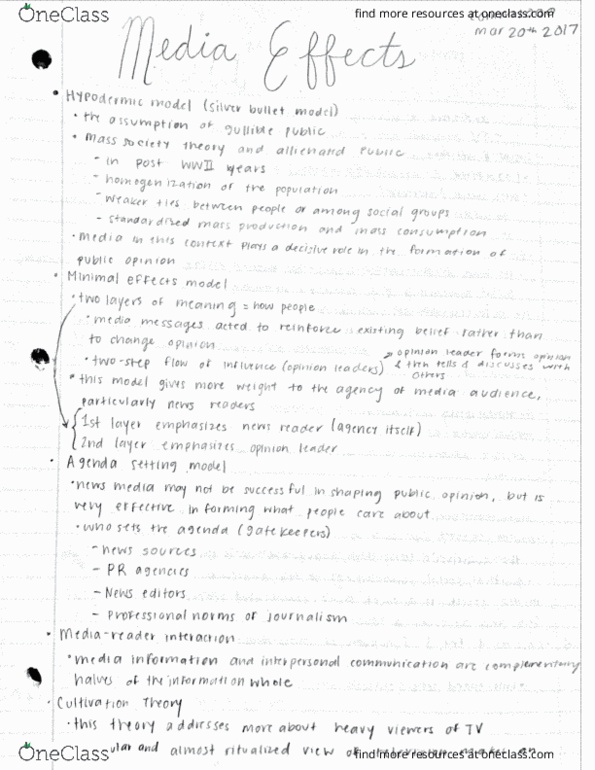 OneClass
find more resources at oneclass.com
mar 20th 2017
Media Effects
• Hypodermic model (silver bullet model)
• the assumption of gullible public
• mass society theory and allienatd public
- in post WWII years
- homogenization of the population
- weaker ties between people or among social groups
- standardized mass production and mass consumption
• media in this context plays a decisive role in the formation of
public opinion
• Minimal effects model
• two layers of meaning = how people
• media messages acted to reinforce existing belief rather than
to change opinion
• two-step flow of influence (opinion leaders)
→ opinion leader forms opinion
& then tells & discusses with
others
• this model gives more weight to the agency of media audience,
particularly news readers
1st layer emphasizes news reader (agency itself)
2nd layer emphasizes opinion leader
• Agenda setting model
• news media may not be successful in shaping public opinion, but is
very effective in forming what people care about
• who sets the agenda (gatekeepers)
- news sources
- PR agencies
- News editors
- Professional norms of journalism
• Media-reader interaction
• media information and interpersonal communication are complementary
halves of the information whole
• Cultivation Theory
• this theory addresses more about heavy viewers of TV
and almost ritualized view of
OneClass
find more resources at oneclass.com